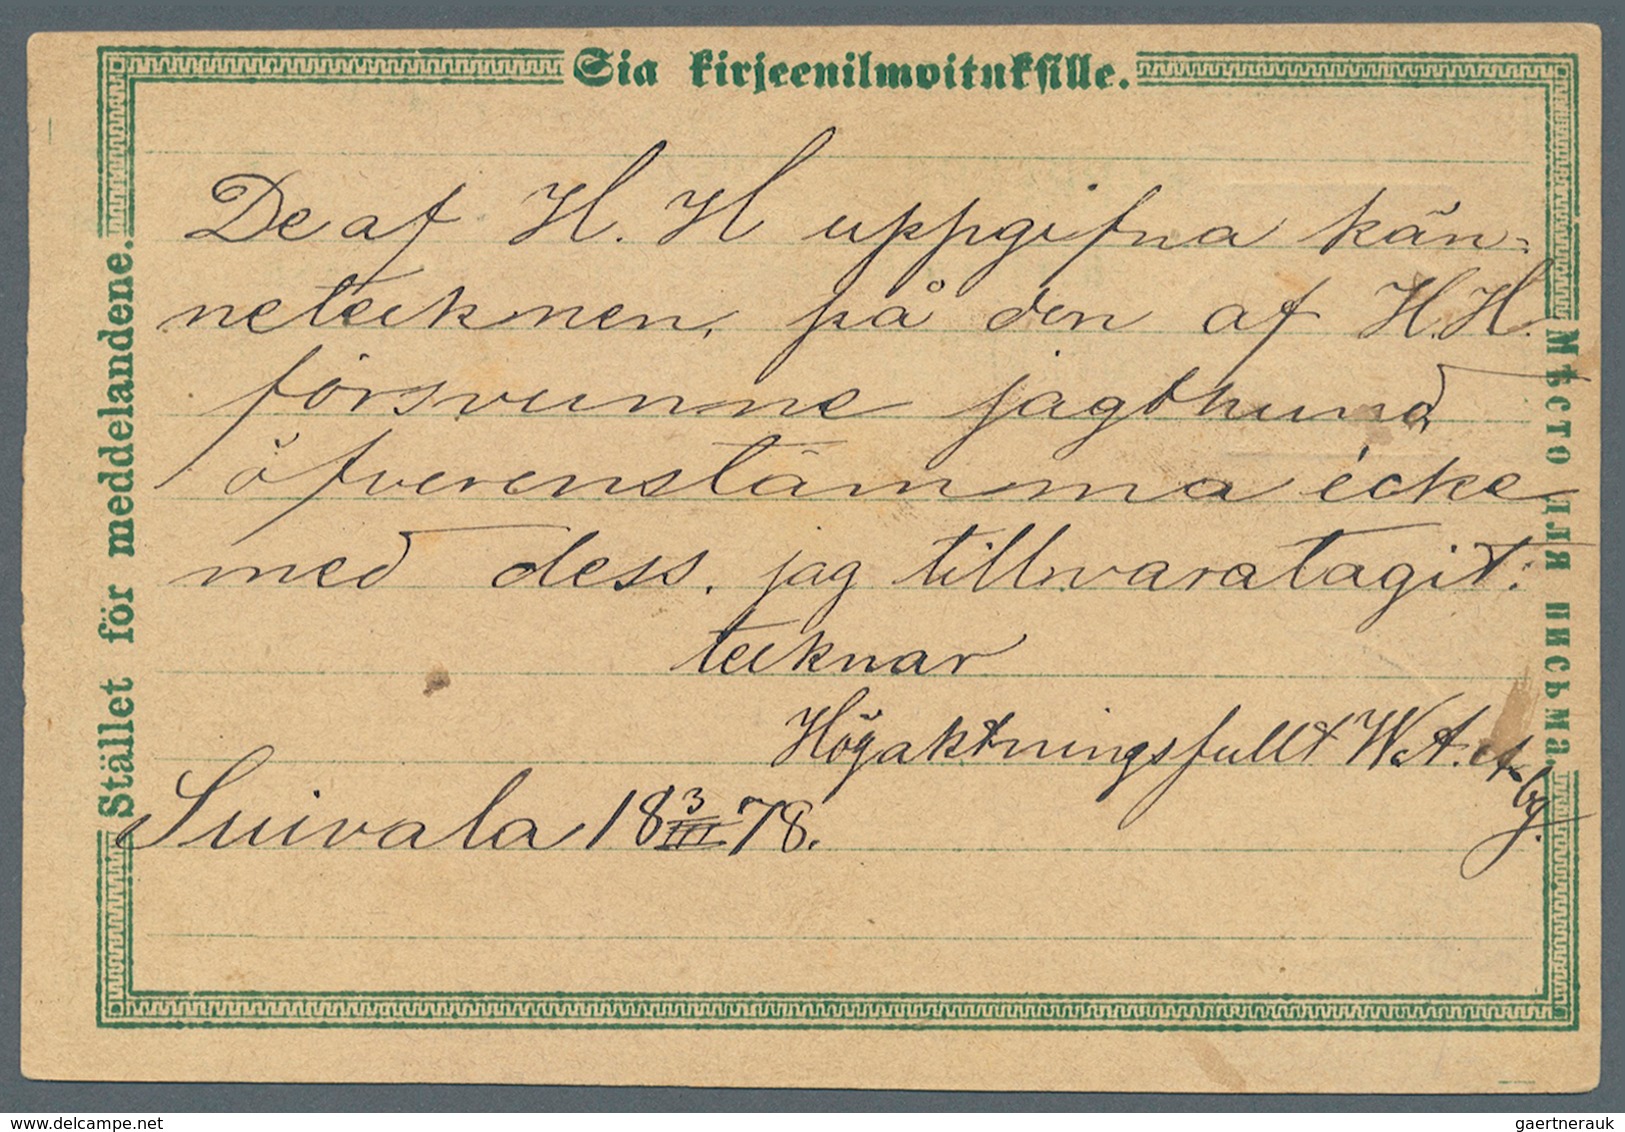 Sia kirjeenilmoituksille.
Stället för meddelandene.
De af H. H uppgifna kän-
netecknen, på den af H.H.
försvunne jagthund,
öfverenstämma icke
med dess. jag tillvaratagit.
tecknar
Högaktningsfullt W.A.
Suivala 18 3/III 78.
Мѣсто для письма.
gaertnerauk